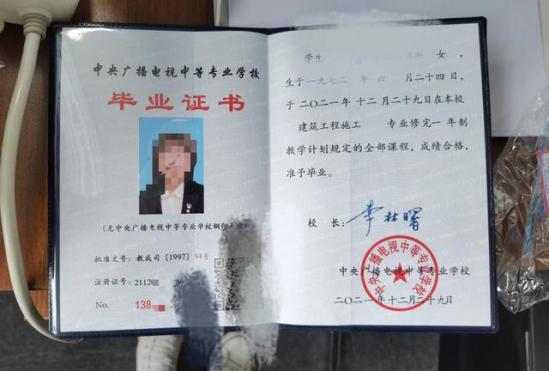 中央广播电视中等专业学校
毕业证书
(无中央广播电视中等专业学校钢印无效)
批准文号：教成司【1997】
注册证号：2112
No. 138
学生 女，
生于一九七二年 六 月二十四日，
于二〇二一年 十二 月二十九日在本校
建筑工程施工 专业修完一年制
教学计划规定的全部课程，成绩合格，
准予毕业。
校 长：李林曙
中央广播电视中等专业学校
中央广播电视中等专业学校
二〇二一年十二月二十九日